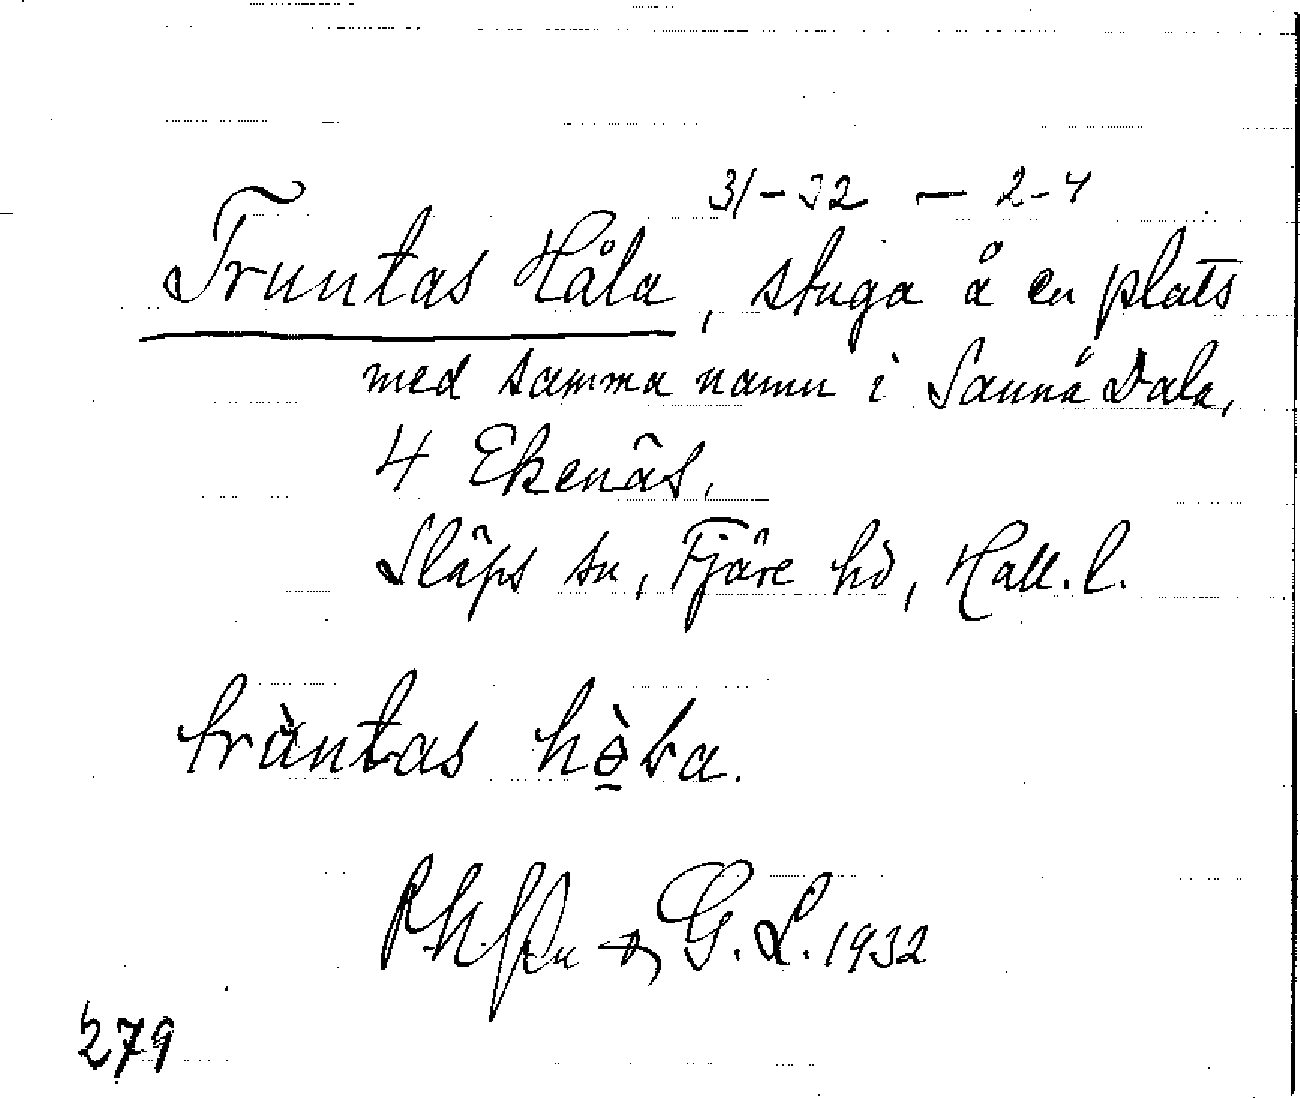 31-32 — 2-4
Truntas Håla, stuga å en plats
med samma namn i Sanna Dala,
4 Ekenäs.
Släps sn, Fjäre hd, Hall. l.
tràntas
G. L. 1932
279